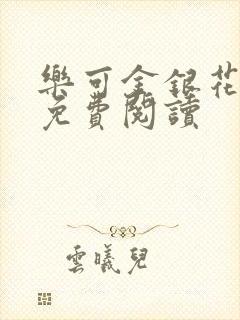 樂可金銀花
免費閱讀
雲曦兒